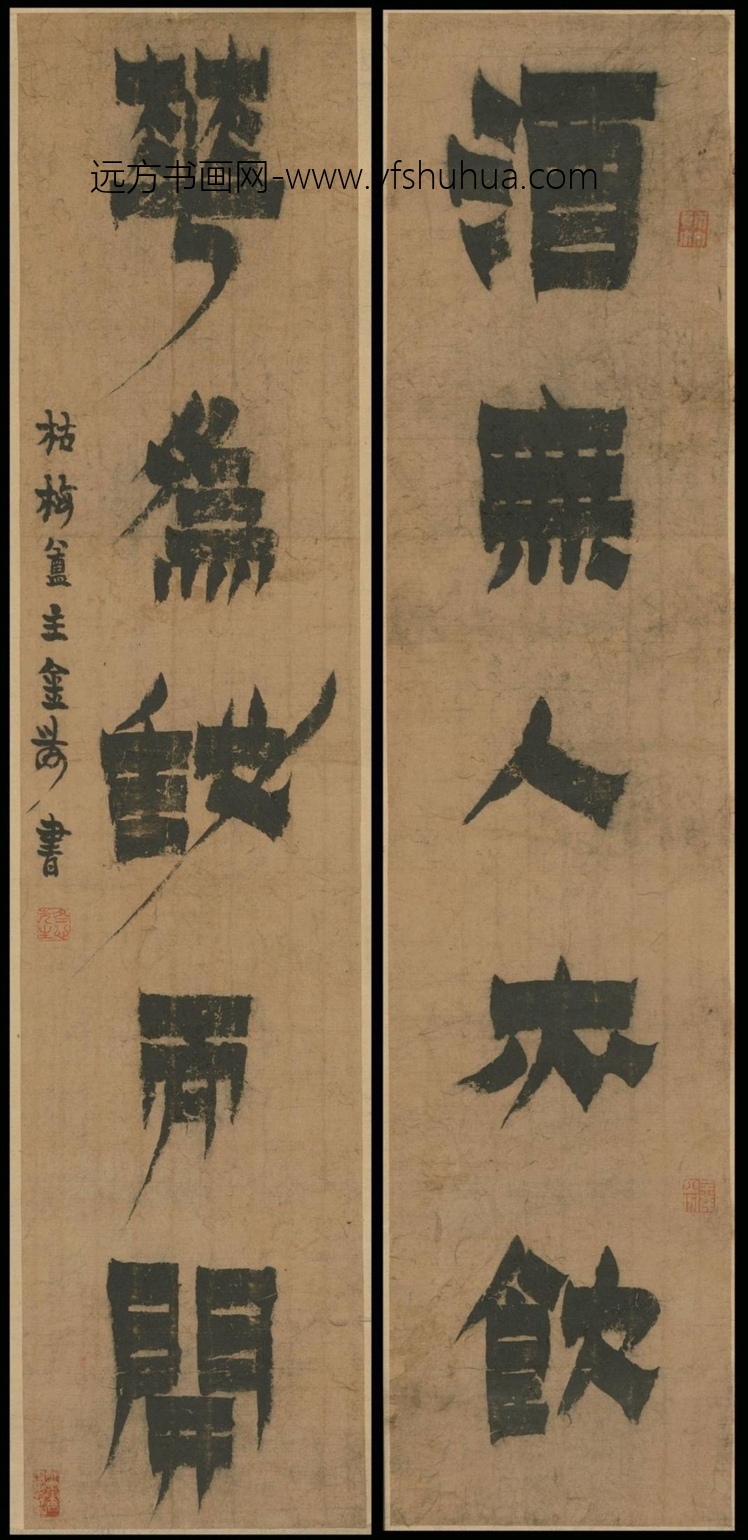 远方书画网-www.yfshuhua.com
酒無人亦飲
華為而開
枯梅盦主金農書